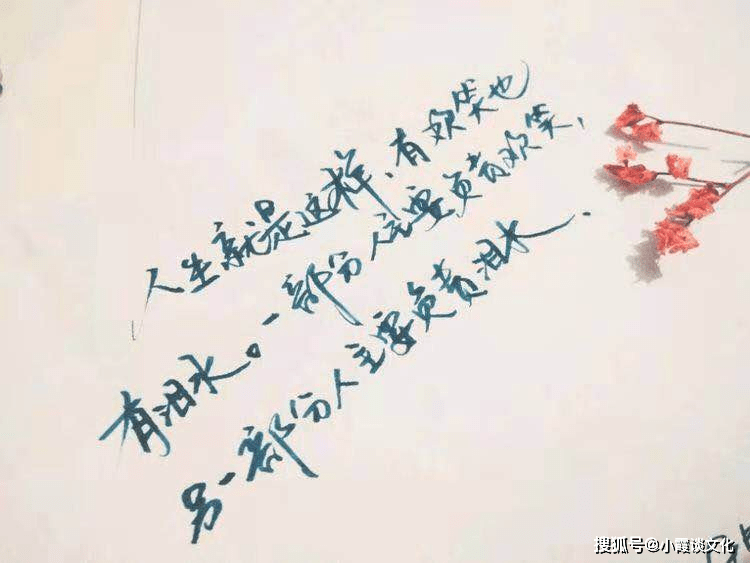 人生就是这样、有欢笑也
有泪水。一部分人主要负责欢笑,
另一部份人主要负责泪水.
搜狐号@小霞谈文化